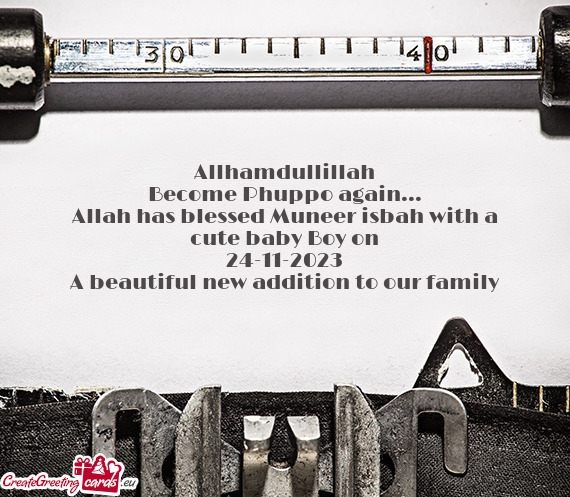 30 40
Allhamdullillah
Become Phuppo again...
Allah has blessed Muneer isbah with a
cute baby Boy on
24-11-2023
A beautiful new addition to our family
CreateGreetingcards.eu